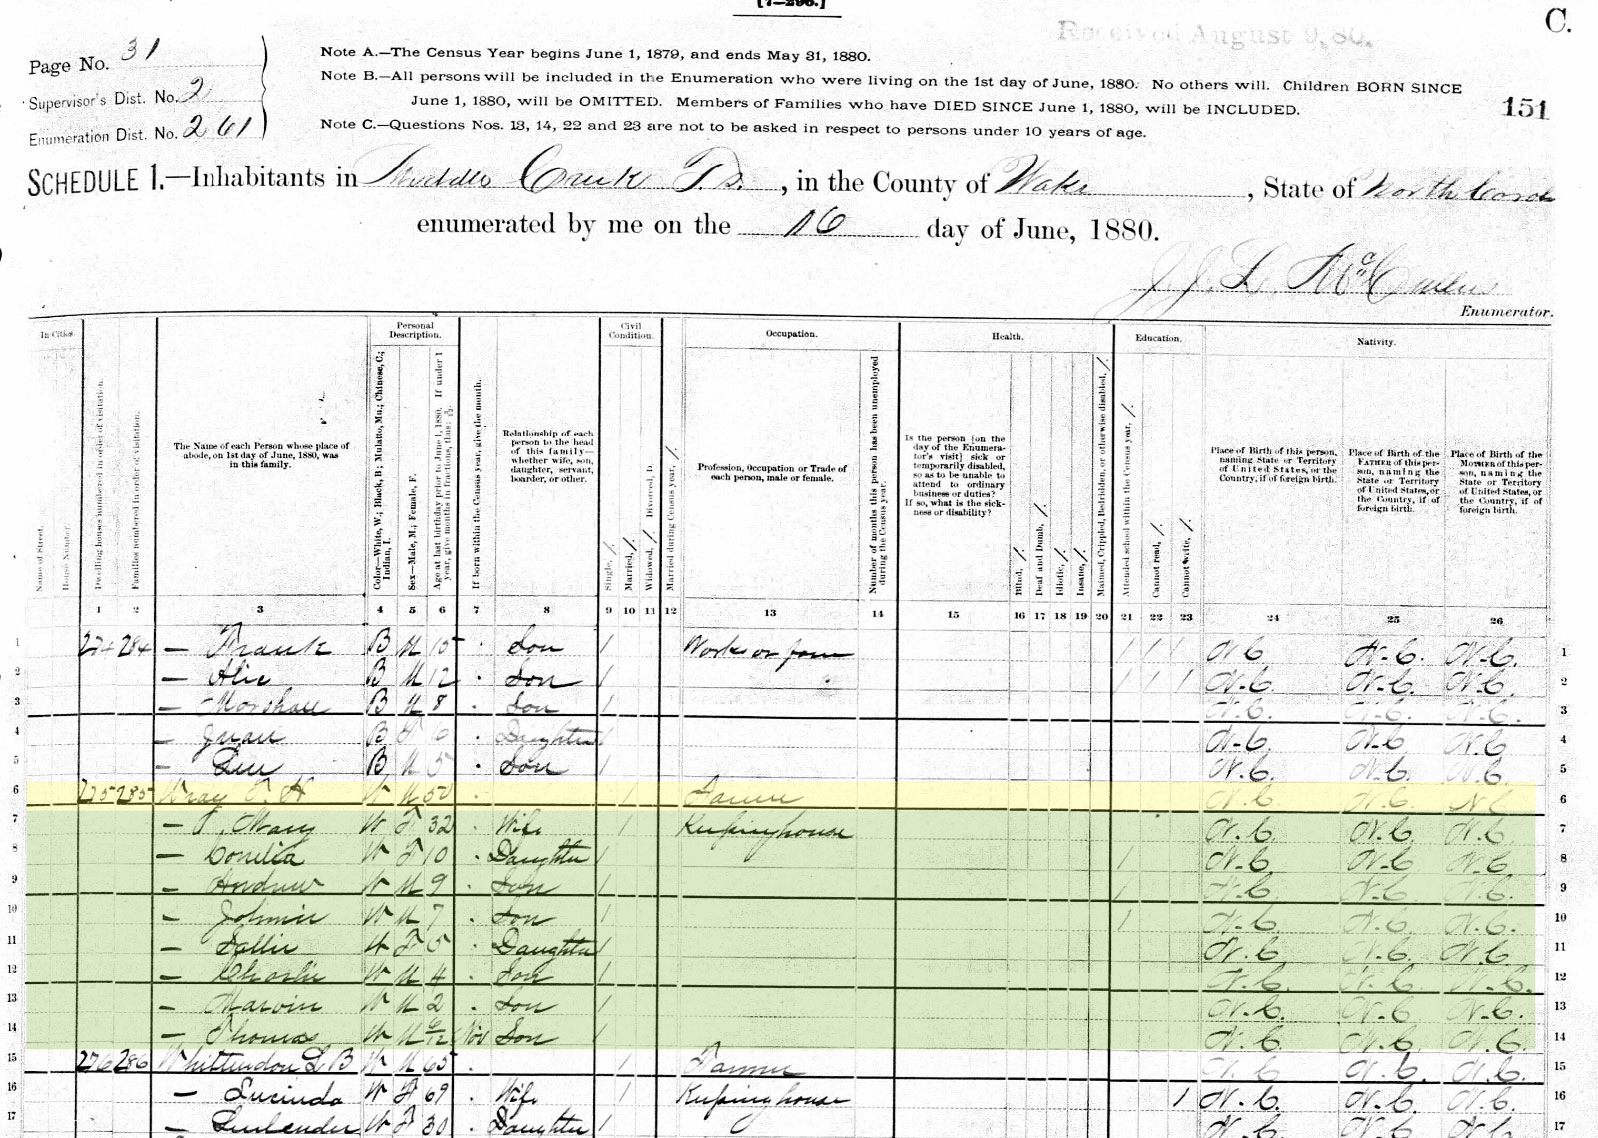 [7-296.]
C.
Received August 9, 80.
Page No. 31
Supervisor's Dist. No. 2
Enumeration Dist. No. 261
Note A.—The Census Year begins June 1, 1879, and ends May 31, 1880.
Note B.—All persons will be included in the Enumeration who were living on the 1st day of June, 1880. No others will. Children BORN SINCE
June 1, 1880, will be OMITTED. Members of Families who have DIED SINCE June 1, 1880, will be INCLUDED.
Note C.—Questions Nos. 13, 14, 22 and 23 are not to be asked in respect to persons under 10 years of age.
151
SCHEDULE 1.—Inhabitants in Middle Creek T.S., in the County of Wake, State of North Caro
enumerated by me on the 16 day of June, 1880.
J. J. L. McCullen
Enumerator.
In Cities.
Name of Street.
House Number.
Dwelling houses numbered in order of visitation.
Families numbered in order of visitation.
The Name of each Person whose place of
abode, on 1st day of June, 1880, was
in this family.
Personal
Description.
Color—White, W.; Black, B.; Mulatto, Mu.; Chinese, C.;
Indian, I.
Sex—Male, M.; Female, F.
Age at last birthday prior to June 1, 1880. If under 1
year, give months in fractions, thus: 3/12.
If born within the Census year, give the month.
Relationship of each
person to the head
of this family—
whether wife, son,
daughter, servant,
boarder, or other.
Civil
Condition.
Single, /.
Married, /.
Widowed, /. Divorced, D.
Married during Census year, /.
Occupation.
Profession, Occupation or Trade of
each person, male or female.
Number of months this person has been unemployed
during the Census year.
Health.
Is the person [on the
day of the Enumera-
tor's visit] sick or
temporarily disabled,
so as to be unable to
attend to ordinary
business or duties?
If so, what is the sick-
ness or disability?
Blind, /.
Deaf and Dumb, /.
Idiotic, /.
Insane, /.
Maimed, Crippled, Bedridden, or otherwise disabled, /.
Education.
Attended school within the Census year, /.
Cannot read, /.
Cannot write, /.
Nativity.
Place of Birth of this person,
naming State or Territory
of United States, or the
Country, if of foreign birth.
Place of Birth of the
FATHER of this per-
son, naming the
State or Territory
of United States, or
the Country, if of
foreign birth.
Place of Birth of the
MOTHER of this per-
son, naming the
State or Territory
of United States, or
the Country, if of
foreign birth.
1 2 3 4 5 6 7 8 9 10 11 12 13 14 15 16 17 18 19 20 21 22 23 24 25 26
1 274 284 — Frank B M 15 Son / Works on farm / / N.C. N.C. N.C. 1
2 — Alic B M 12 Son / / / / N.C. N.C. N.C. 2
3 — Marshall B M 8 Son / N.C. N.C. N.C. 3
4 — B F 6 Daughter / N.C. N.C. N.C. 4
5 — B M 5 Son / N.C. N.C. N.C. 5
6 275 285 Wray T. H W M 50 / Farmer N.C. N.C. N.C. 6
7 — T. Mary W F 32 Wife / Keeping house N.C. N.C. N.C. 7
8 — Conelia W F 10 Daughter / / N.C. N.C. N.C. 8
9 — Andrew W M 9 Son / / N.C. N.C. N.C. 9
10 — Johnnie W M 7 Son / / N.C. N.C. N.C. 10
11 — Sallie W F 5 Daughter / N.C. N.C. N.C. 11
12 — Charlie W M 4 Son / N.C. N.C. N.C. 12
13 — Marvin W M 2 Son / N.C. N.C. N.C. 13
14 — Thomas W M 6/12 Nov Son / N.C. N.C. N.C. 14
15 276 286 Whittendon L B W M 65 / Farmer N.C. N.C. N.C. 15
16 — Lucinda W F 69 Wife / Keeping house / N.C. N.C. N.C. 16
17 — W F 30 Daughter N.C. N.C. N.C. 17